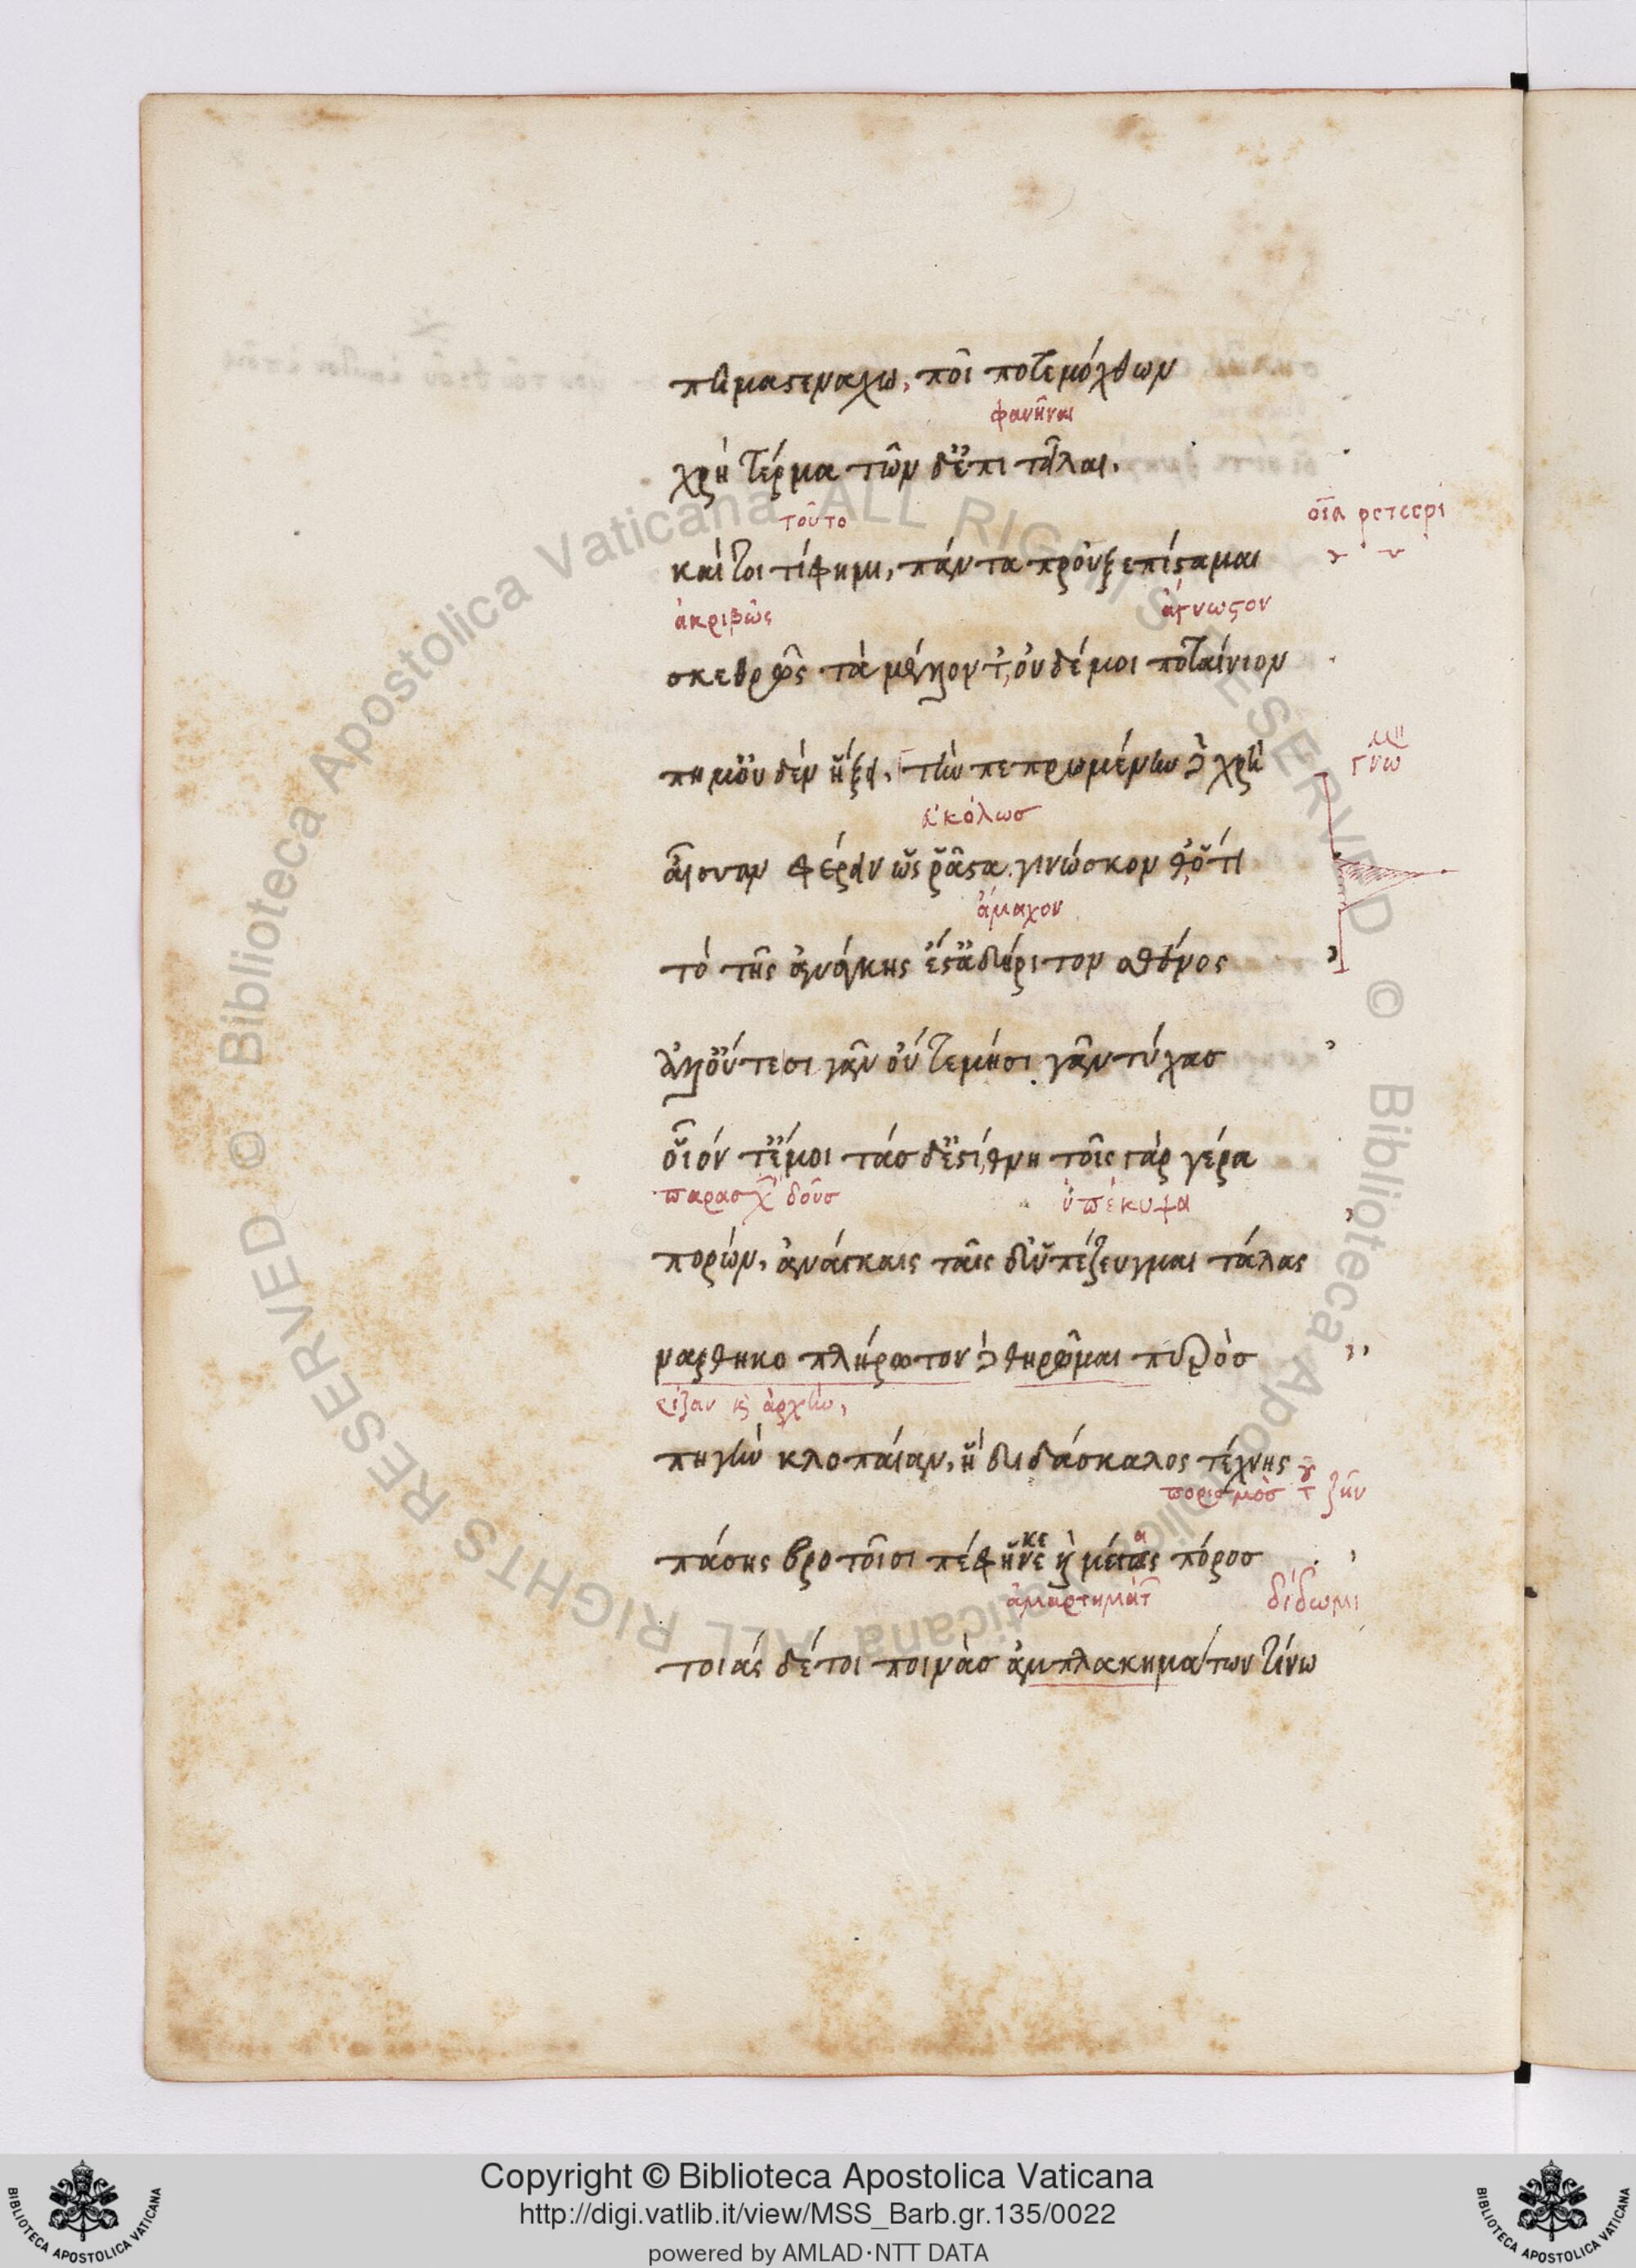 πῆμα στενάχω, ποῖ ποτε μόχθων
φανῆναι
χρὴ τέρμα τῶνδ' ἐπιτεῖλαι.
τοῦτο
καίτοι τί φημι, πάντα προυξεπίσταμαι
ἀκριβῶς ἄγνωστον
σκεθρῶς τὰ μέλλοντ', οὐδέ μοι ποταίνιον
πῆμ' οὐδὲν ἥξει. τὴν πεπρωμένην δὲ χρὴ
γνώ
εὐκόλως
αἶσαν φέρειν ὡς ῥᾷστα. γινώσκονθ' ὅτι
ἄμαχον
τὸ τῆς ἀνάγκης ἔστ' ἀδήριτον σθένος
ἀλλ' οὔτε σιγᾶν οὔτε μὴ σιγᾶν τύχας
οἷόν τέ μοι τάσδ' ἐστί, θνητοῖς γὰρ γέρα
παρασχ δοὺς ὑπέκυψα
πορών, ἀνάγκαις ταῖσδ' ὑπέζευγμαι τάλας
ναρθηκοπλήρωτον δὲ θηρῶμαι πυρὸς
ῥίζαν κ ἀρχὴν,
πηγὴν κλοπαίαν, ἣ διδάσκαλος τέχνης
πορισμὸς τ ζῆν
πάσης βροτοῖσι πέφηνε κε μέγας πόρος
ἁμαρτημάτ δίδωμι
τοιάσδέ τοι ποινὰς ἀμπλακημάτων τίνω
Copyright © Biblioteca Apostolica Vaticana
http://digi.vatlib.it/view/MSS_Barb.gr.135/0022
powered by AMLAD·NTT DATA
BIBLIOTECA APOSTOLICA VATICANA
BIBLIOTECA APOSTOLICA VATICANA
© Biblioteca Apostolica Vaticana ALL RIGHTS RESERVED © Biblioteca Apostolica Vaticana ALL RIGHTS RESERVED